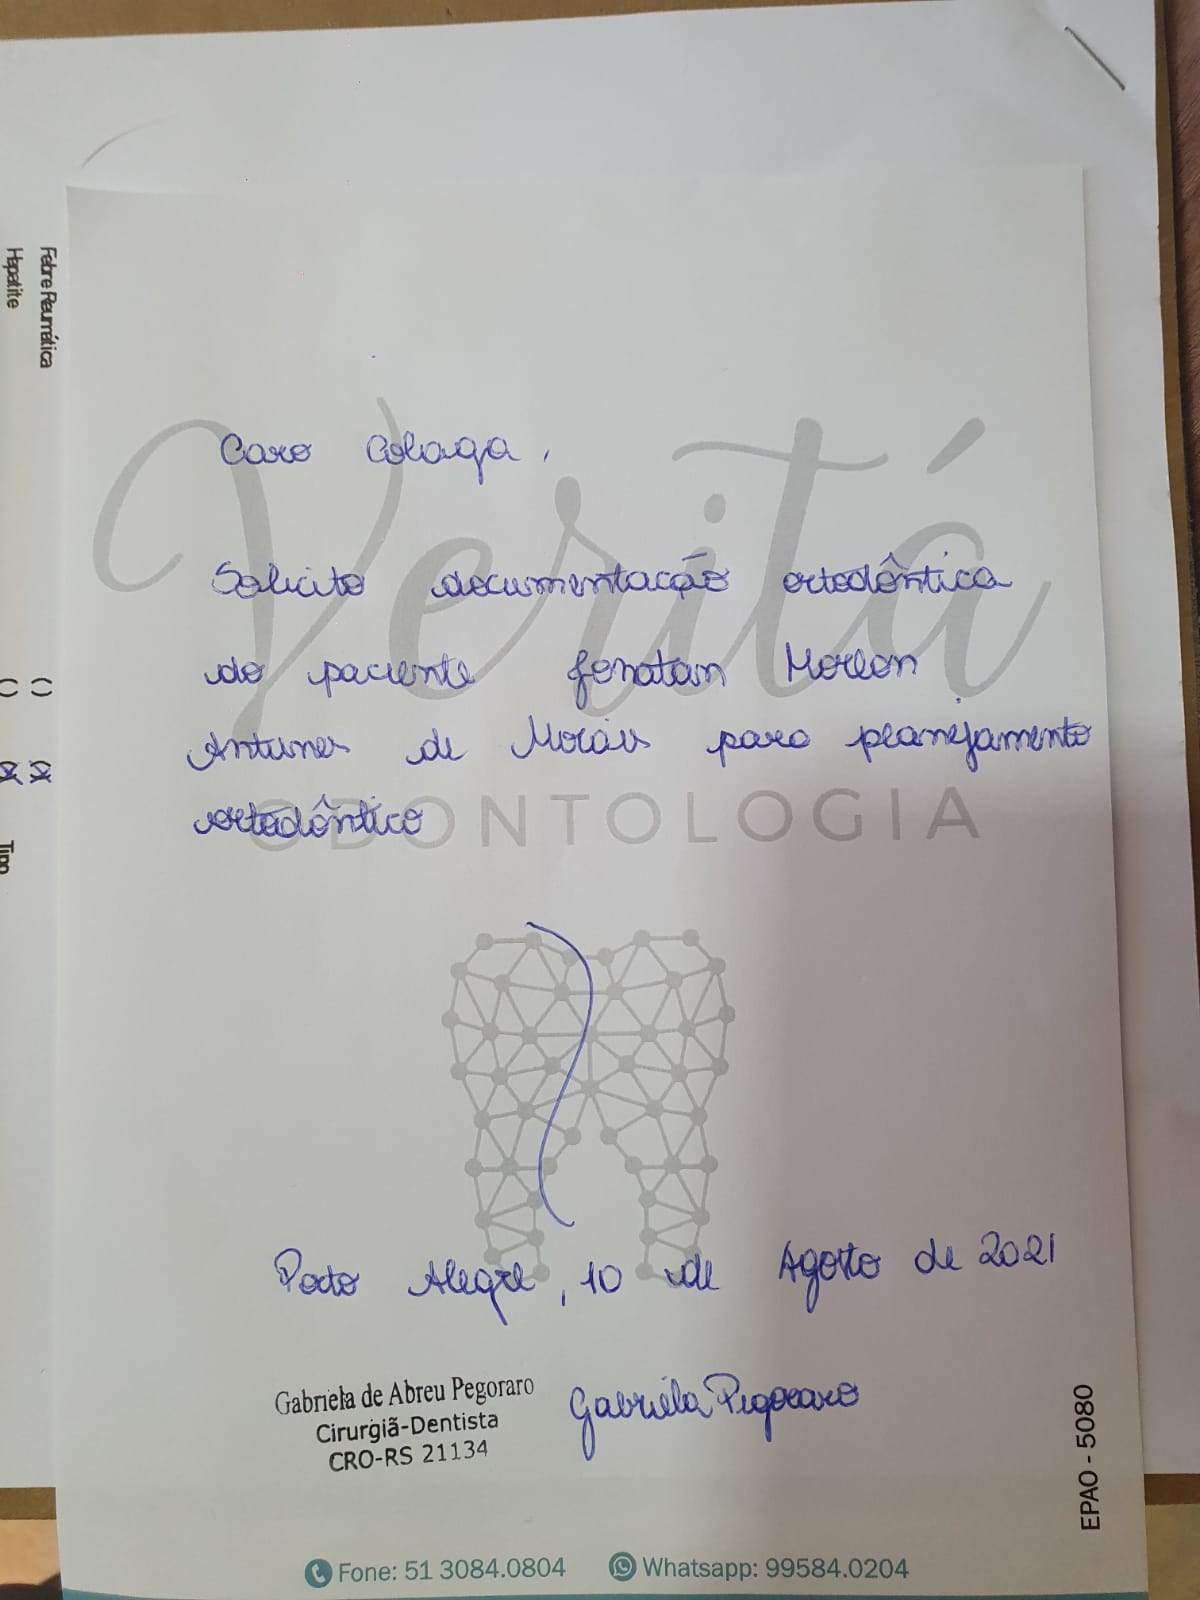 Caro Colega,
Solicito documentação ortodôntica
do paciente Jonatan Morlon
Antunes de Morais para planejamento
ortodôntico
Veritá
ODONTOLOGIA
Porto Alegre, 10 de Agosto de 2021
Gabriela de Abreu Pegoraro
Cirurgiã-Dentista
CRO-RS 21134
Gabriela Pegoraro
EPAO - 5080
Fone: 51 3084.0804 Whatsapp: 99584.0204
Febre Reumática ( ) (X)
Hepatite ( ) (X) Tipo